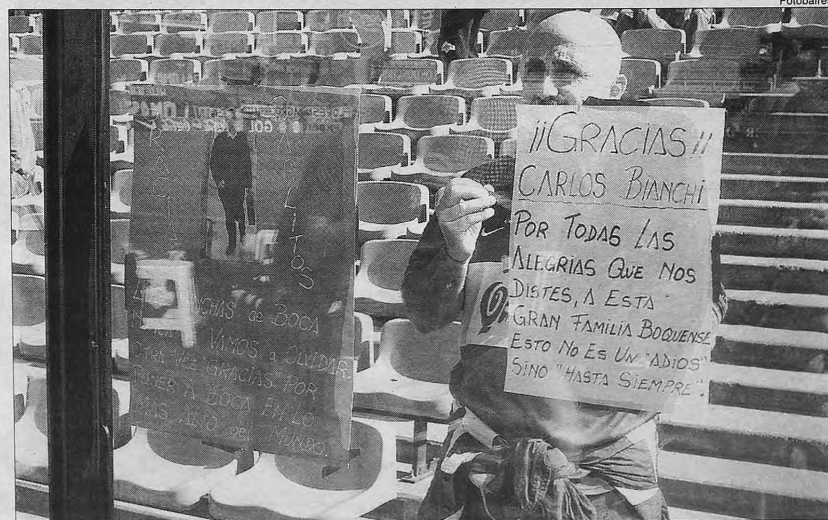 Fotobaires
¡¡GRACIAS¡¡
CARLOS BIANCHI
POR TODAS LAS
ALEGRIAS QUE NOS
DISTES, A ESTA
GRAN FAMILIA BOQUENSE
ESTO NO ES UN "ADIOS"
SINO "HASTA SIEMPRE".
CHAS de BOCA
VAMOS a OLVIDAR.
OTRA VEZ "GRACIAS" POR
PONER A BOCA EN LO
MAS ALTO del MUNDO.